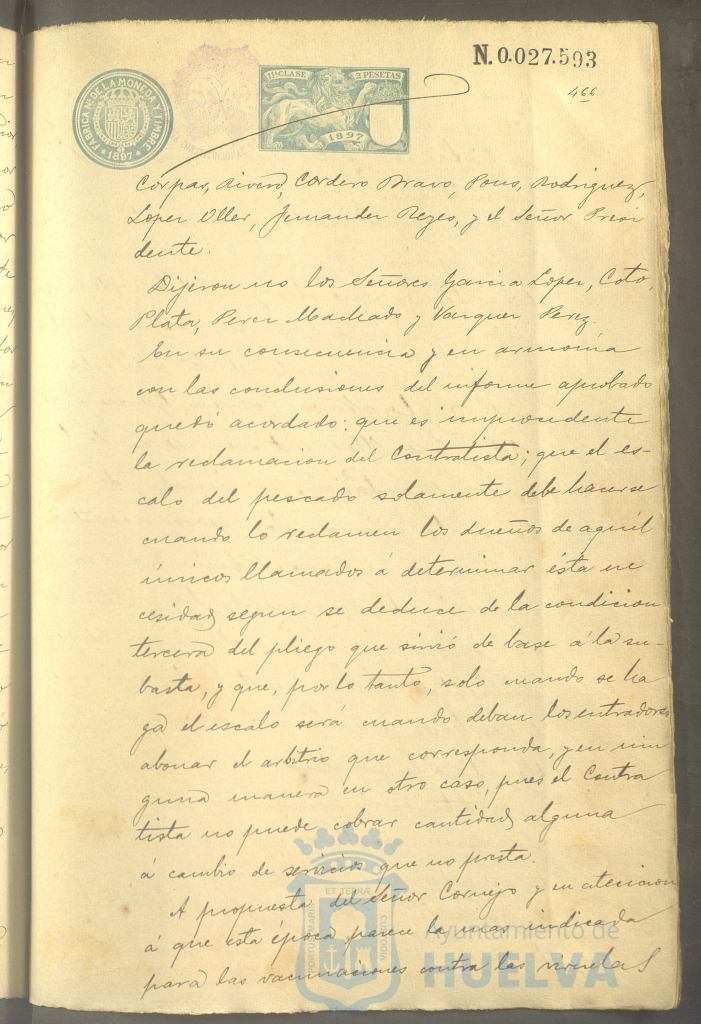 N. 0.027.593
466
FABRICA NL. DE LA MONEDA Y TIMBRE
1897
11ª CLASE 2 PESETAS
1897
Corpas, Rivero, Cordero Bravo, Pons, Rodriguez,
Lopez Oller, Fernandez Reyes, y el Señor Presi
dente.
Dijeron no los Señores Garcia Lopez, Coto,
Plata, Perez Machado y Vazquez Perez.
En su consecuencia y en armonia
con las conclusiones del informe aprobado
quedó acordado: que es improcedente
la reclamacion del Contratista; que el es-
calo del pescado solamente debe hacerse
cuando lo reclamen los dueños de aquél
únicos llamados á determinar ésta ne
cesidad segun se deduce de la condicion
tercera del pliego que sirvió de base á la su-
basta, y que, por lo tanto, solo cuando se ha
ga el escalo será cuando deban los entradores
abonar el arbitrio que corresponda, y en nin
guna manera en otro caso, pues el Contra
tista no puede cobrar cantidad alguna
á cambio de servicios que no presta.
A propuesta del Señor Cornejo y en atencion
á que esta época parece la mas indicada
para las vacunaciones contra las viruelas
Ayuntamiento de
HUELVA